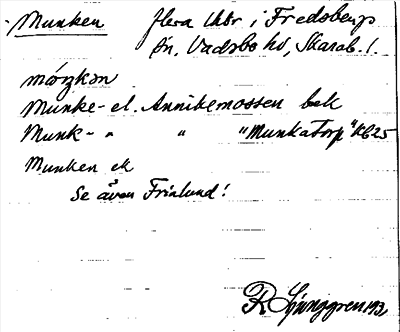 Munken flera lkbr i Fredsbergs
sn. Vadsbo hd, Skarab. l.
mouzkon
Munke- el. Annikemossen bek
Munk- " " "Munkatorp" KB25
Munken ek
Se även Frinlund!
R Ljunggren 193